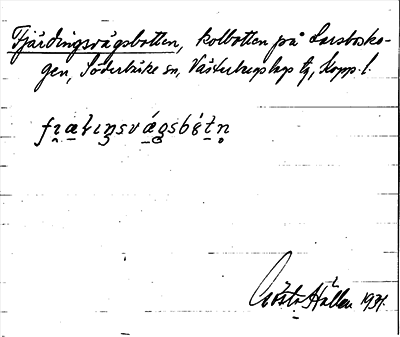 Fjärdingsvägsbotten, kolbotten på Larsbosko-
gen, Söderbärke sn, Västerbergslags tg, Kopp. l.
Gösta Hallen 1931.